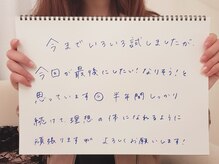 今までいろいろ試しましたが、
今回が最後にしたい！なりそう！と
思っています☺ 半年間しっかり
続けて理想の体になれるように
頑張ります よろしくお願いします！